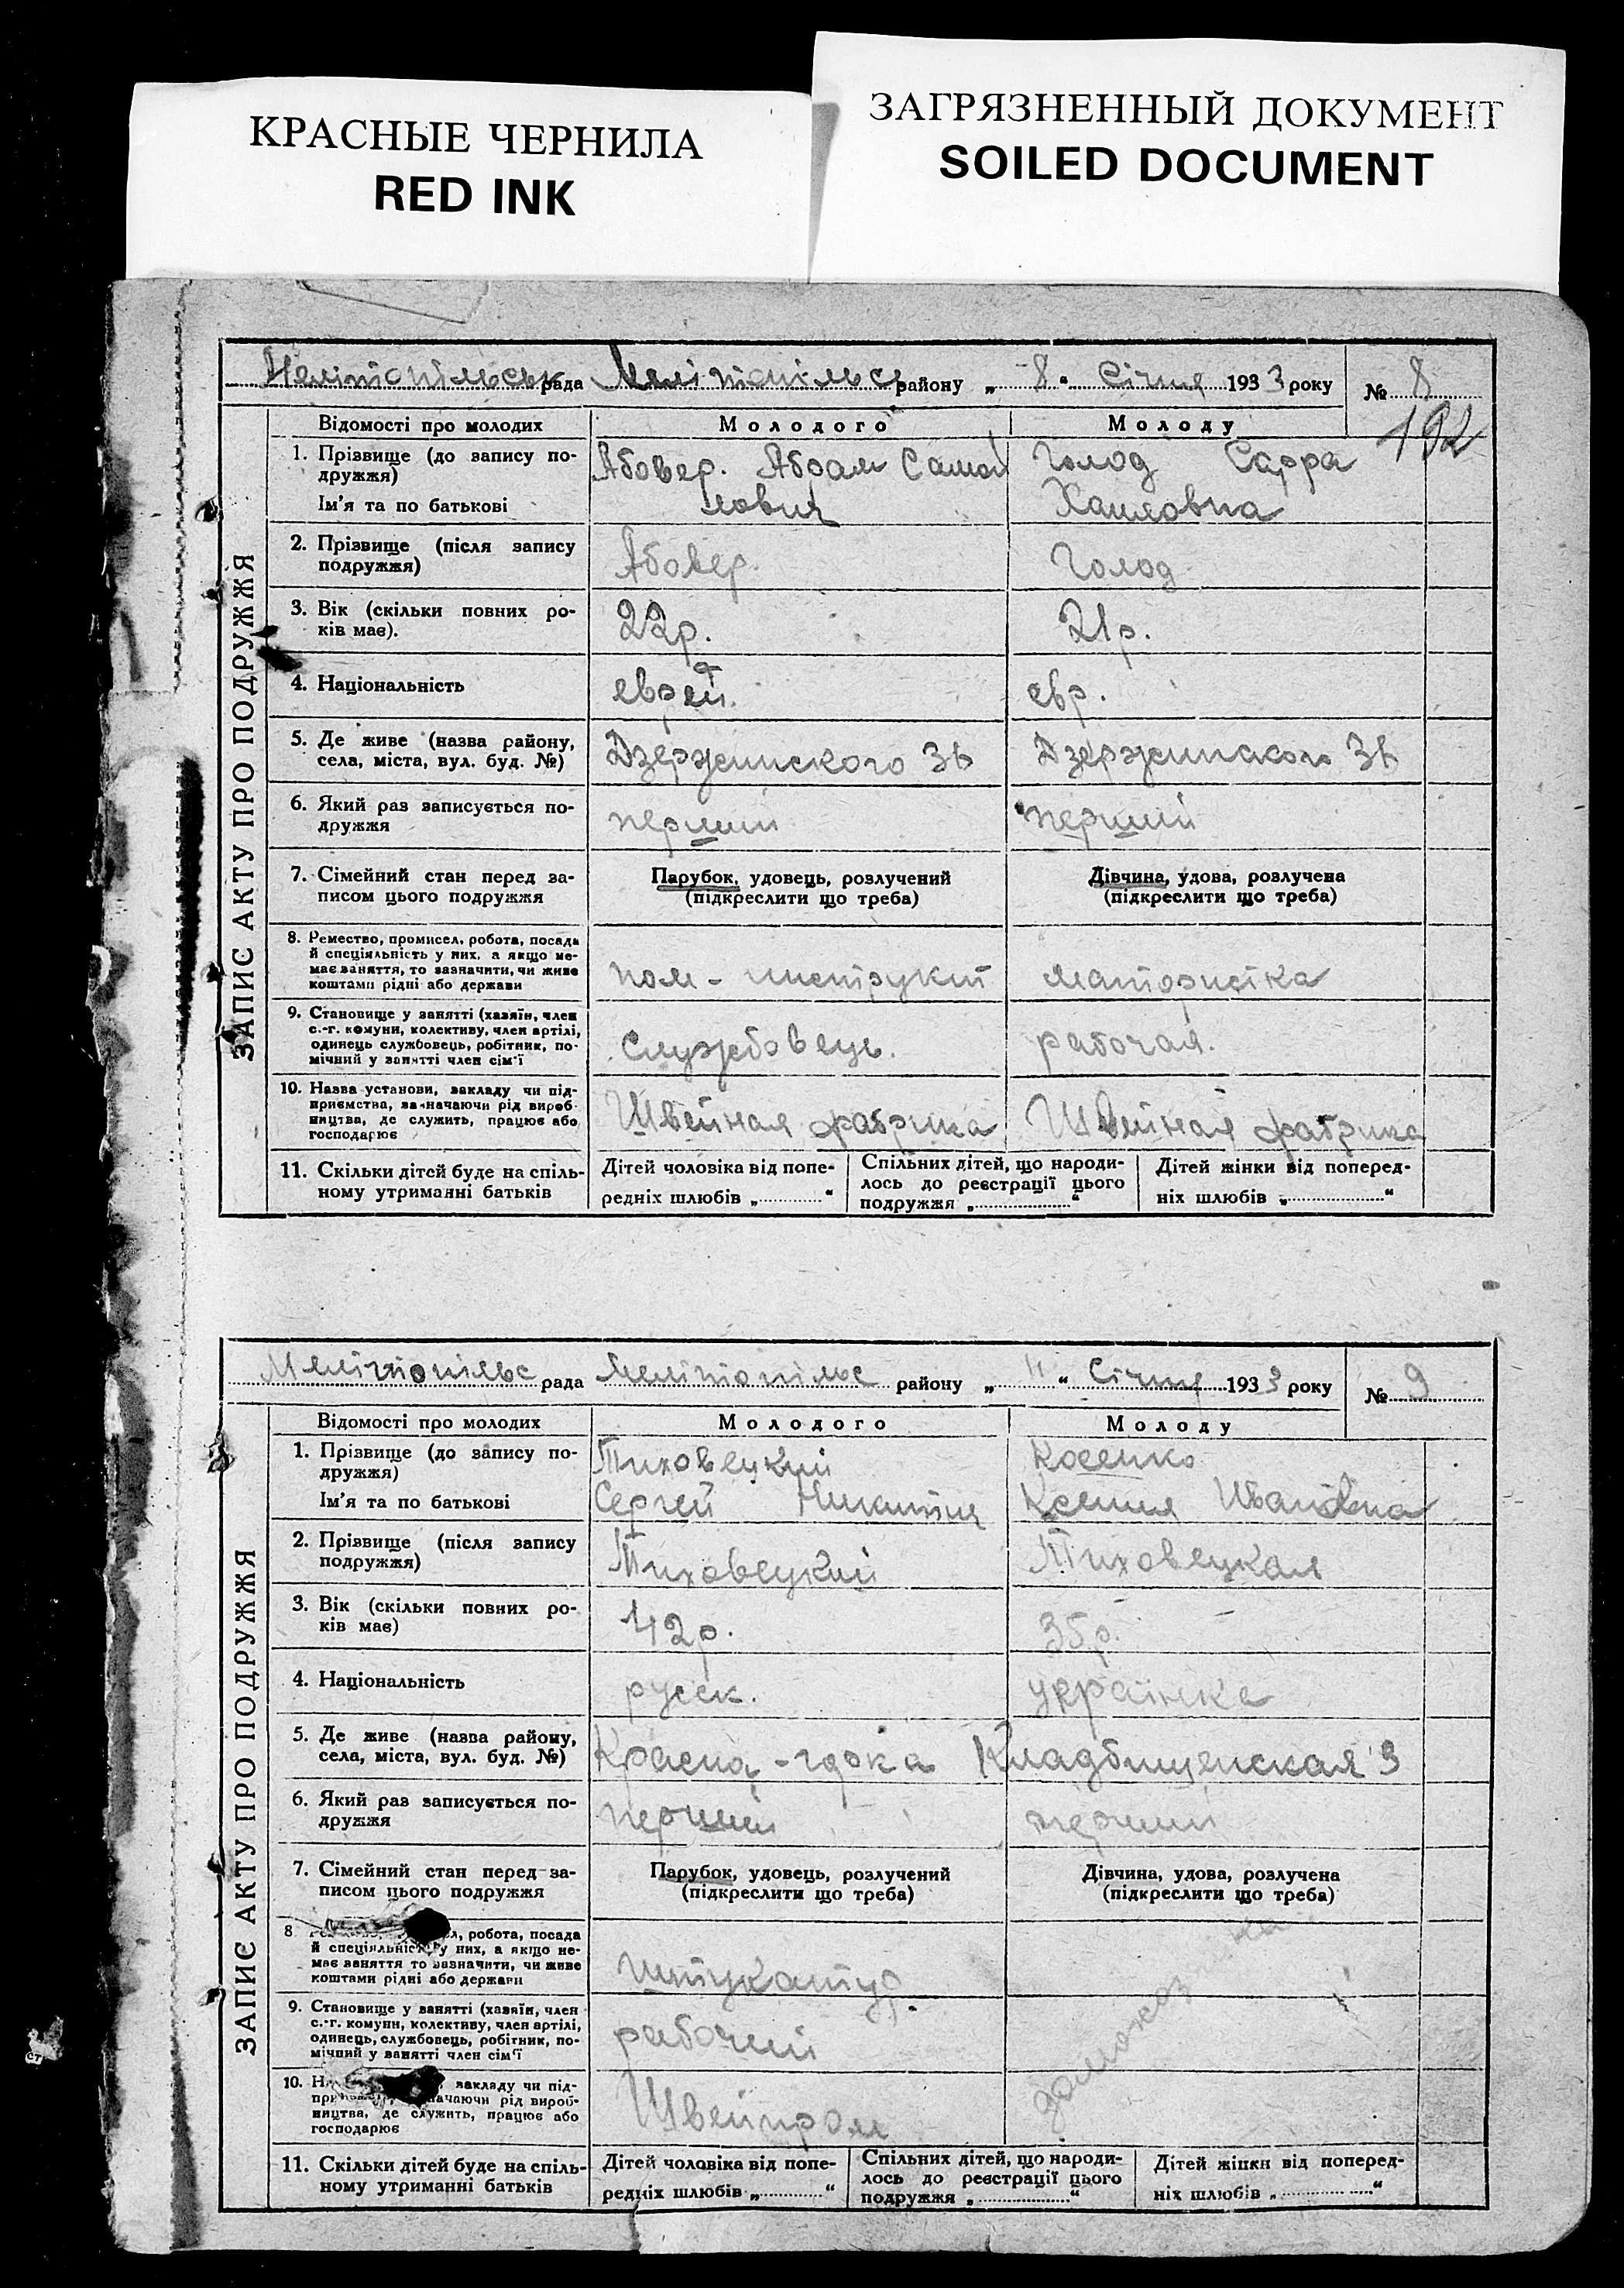 КРАСНЫЕ ЧЕРНИЛА
RED INK
ЗАГРЯЗНЕННЫЙ ДОКУМЕНТ
SOILED DOCUMENT
Мелітопільськ рада Мелітопільс району „ 8 “ Січня 1933 року № 8
192
ЗАПИС АКТУ ПРО ПОДРУЖЖЯ
Відомості про молодих Молодого Молоду
1. Прізвище (до запису по-
дружжя)
Ім'я та по батькові
Абовер. Абрам Самой
лович
Голод Сарра
Хаимовна
2. Прізвище (після запису
подружжя)
Абовер.
Голод
3. Вік (скільки повних ро-
ків має).
22р.
21р.
4. Національність
еврей.
евр.
5. Де живе (назва району,
села, міста, вул. буд. №)
Дзержинского 36
Дзержинского 36
6. Який раз записується по-
дружжя
перший
перший
7. Сімейний стан перед за-
писом цього подружжя
Парубок, удовець, розлучений
(підкреслити що треба)
Дівчина, удова, розлучена
(підкреслити що треба)
8. Ремество, промисел, робота, посада
й спеціяльність у них, а якщо не-
має заняття, то зазначити, чи живе
коштами рідні або держави
пом - инструкт
матористка
9. Становище у занятті (хазяїн, член
с.-г. комуни, колективу, член артілі,
одинець службовець, робітник, по-
мічний у занятті член сім'ї
службовець.
рабочая.
10. Назва установи, закладу чи під-
приємства, зазначаючи рід вироб-
ництва, де служить, працює або
господарює
Швейная фабрика
Швейная фабрика
11. Скільки дітей буде на спіль-
ному утриманні батьків
Дітей чоловіка від попе-
редніх шлюбів „ “
Спільних дітей, що народи-
лось до реєстрації цього
подружжя „ “
Дітей жінки від поперед-
ніх шлюбів „ “
Мелітопільс рада Мелітопільс району „ 11 “ Січня 1933 року № 9
ЗАПИС АКТУ ПРО ПОДРУЖЖЯ
Відомості про молодих Молодого Молоду
1. Прізвище (до запису по-
дружжя)
Ім'я та по батькові
Тиховецкий
Сергей Никитич
Косенко
Ксения Ивановна
2. Прізвище (після запису
подружжя)
Тиховецкий
Тиховецкая
3. Вік (скільки повних ро-
ків має)
42р.
35р.
4. Національність
русск.
українка
5. Де живе (назва району,
села, міста, вул. буд. №)
Красна - горка Кладбищенская 3
6. Який раз записується по-
дружжя
перший
перший
7. Сімейний стан перед за-
писом цього подружжя
Парубок, удовець, розлучений
(підкреслити що треба)
Дівчина, удова, розлучена
(підкреслити що треба)
8 робота, посада
й спеціяльність у них, а якщо не-
має заняття то зазначити, чи живе
коштами рідні або держави
штукатур
9. Становище у занятті (хазяїн, член
с.-г. комуни, колективу, член артілі,
одинець, службовець, робітник, по-
мічний у занятті член сім'ї
рабочий
домохоз
10. закладу чи під-
рід вироб-
ництва, де служить, працює або
господарює
Швейпром
11. Скільки дітей буде на спіль-
ному утриманні батьків
Дітей чоловіка від попе-
редніх шлюбів „ “
Спільних дітей, що народи-
лось до реєстрації цього
подружжя „ “
Дітей жінки від поперед-
ніх шлюбів „ “